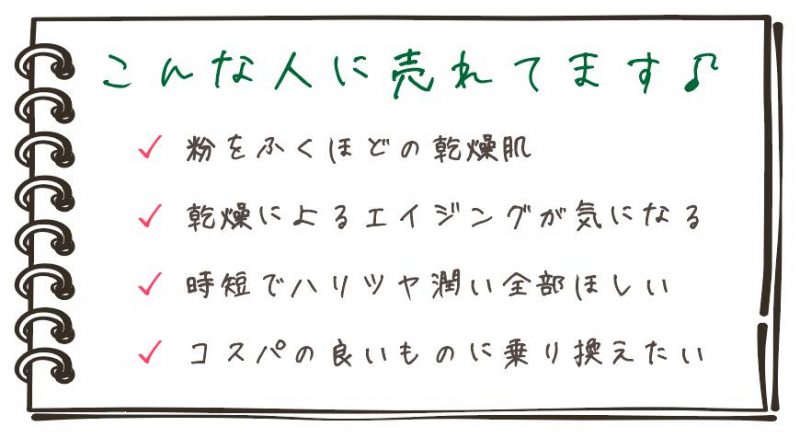 こんな人に売れてます♪
✓ 粉をふくほどの乾燥肌
✓ 乾燥によるエイジングが気になる
✓ 時短でハリツヤ潤い全部ほしい
✓ コスパの良いものに乗り換えたい